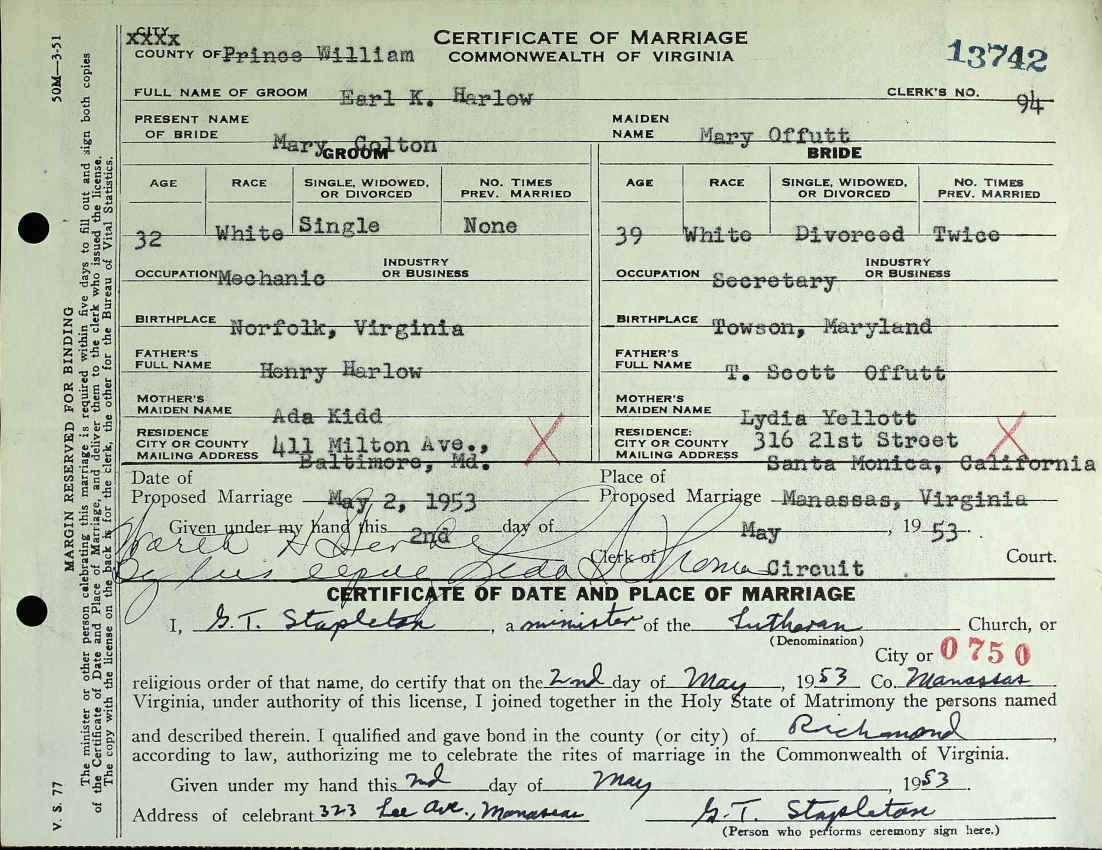 CITY
XXXX
COUNTY OF Prince William
CERTIFICATE OF MARRIAGE
COMMONWEALTH OF VIRGINIA
13742
FULL NAME OF GROOM Earl K. Harlow
CLERK'S NO. 94
PRESENT NAME OF BRIDE Mary Colton
MAIDEN NAME Mary Offutt
GROOM
BRIDE
AGE RACE SINGLE, WIDOWED, OR DIVORCED NO. TIMES PREV. MARRIED
AGE RACE SINGLE, WIDOWED, OR DIVORCED NO. TIMES PREV. MARRIED
32 White Single None
39 White Divorced Twice
OCCUPATION Mechanic INDUSTRY OR BUSINESS
OCCUPATION Secretary INDUSTRY OR BUSINESS
BIRTHPLACE Norfolk, Virginia
BIRTHPLACE Towson, Maryland
FATHER'S FULL NAME Henry Harlow
FATHER'S FULL NAME T. Scott Offutt
MOTHER'S MAIDEN NAME Ada Kidd
MOTHER'S MAIDEN NAME Lydia Yellott
RESIDENCE CITY OR COUNTY MAILING ADDRESS 411 Milton Ave., Baltimore, Md. X
RESIDENCE: CITY OR COUNTY MAILING ADDRESS 316 21st Street Santa Monica, California X
Date of Proposed Marriage May 2, 1953
Place of Proposed Marriage Manassas, Virginia
Given under my hand this 2nd day of May, 1953.
Clerk of Circuit Court.
Leda S. Thomas
CERTIFICATE OF DATE AND PLACE OF MARRIAGE
I, G. T. Stapleton, a minister of the Lutheran Church, or
(Denomination)
City or 0750
religious order of that name, do certify that on the 2nd day of May, 1953 Co. Manassas
Virginia, under authority of this license, I joined together in the Holy State of Matrimony the persons named
and described therein. I qualified and gave bond in the county (or city) of Richmond,
according to law, authorizing me to celebrate the rites of marriage in the Commonwealth of Virginia.
Given under my hand this 2nd day of May, 1953.
Address of celebrant 323 Lee Ave., Manassas
G. T. Stapleton
(Person who performs ceremony sign here.)
50M—3-51
MARGIN RESERVED FOR BINDING
V. S. 77
The minister or other person celebrating this marriage is required within five days to fill out and sign both copies
of the Certificate of Date and Place of Marriage, and deliver them to the clerk who issued the license.
The copy with the license on the back is for the clerk, the other for the Bureau of Vital Statistics.